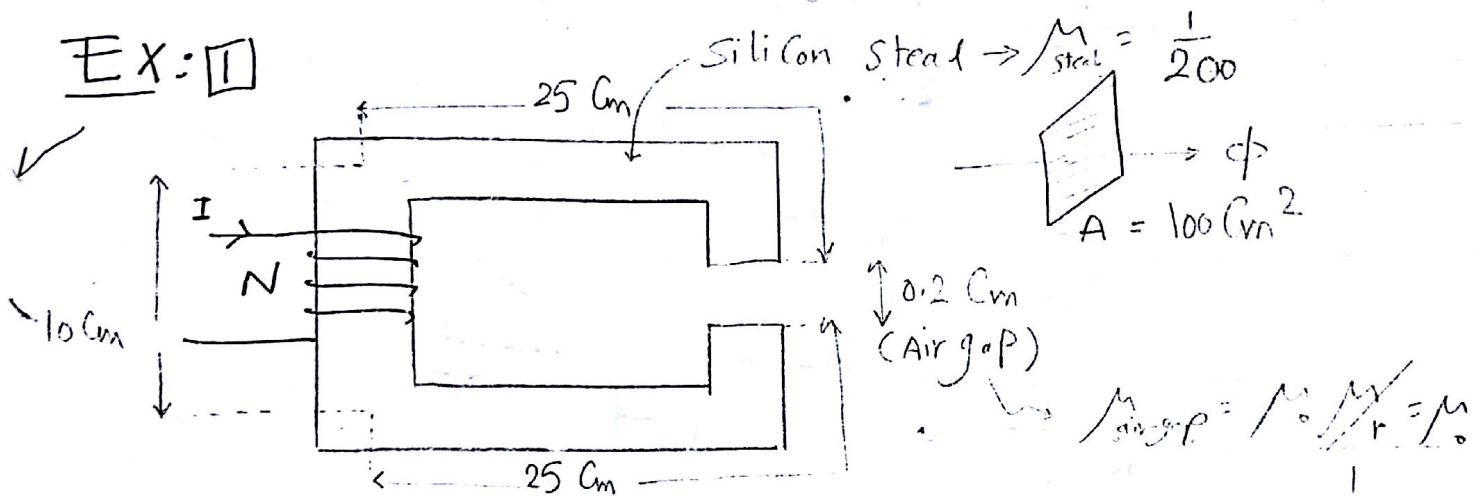 Ex: 1
Silicon Steal → μsteal = 1/200
25 Cm
I
N
10 Cm
ϕ
A = 100 Cm²
0.2 Cm
(Air gap)
μairgap = μ₀ μr = μ₀
1
25 Cm